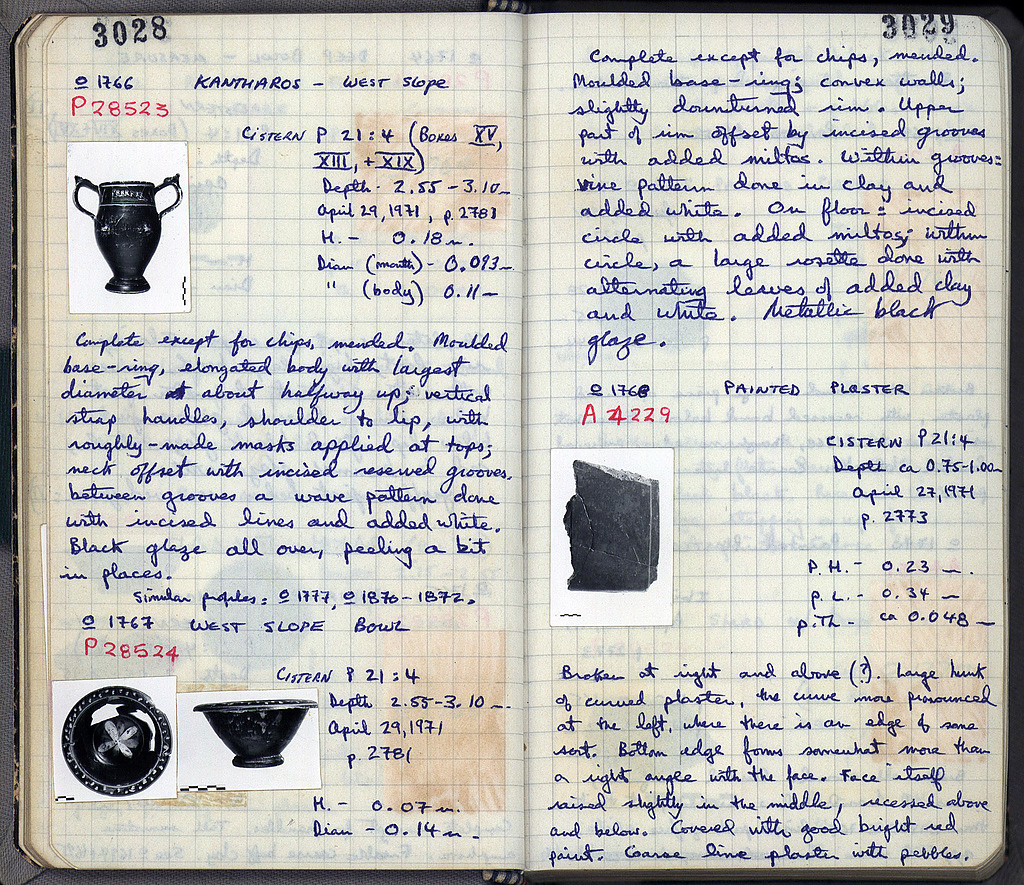 3028
o 1766 KANTHAROS – WEST SLOPE
P 28523
CISTERN P 21:4 (BOXES XV,
XIII, + XIX)
Depth - 2.55 – 3.10 m
April 29, 1971, p. 2781
H. – 0.18 m.
Diam (mouth) – 0.093 m
" (body) 0.11 m
Complete except for chips, mended. Moulded
base-ring, elongated body with largest
diameter at about halfway up; vertical
strap handles, shoulder to lip, with
roughly-made masks applied at tops;
neck offset with incised reserved grooves.
between grooves a wave pattern done
with incised lines and added white.
Black glaze all over, peeling a bit
in places.
Similar profiles: o 1777, o 1870–1872.
o 1767 WEST SLOPE BOWL
P 28524
CISTERN P 21:4
Depth 2.55–3.10 m.
April 29, 1971
p. 2781
H. – 0.07 m.
Diam – 0.14 m.
3029
Complete except for chips, mended.
Moulded base-ring; convex walls;
slightly downturned rim. Upper
part of rim offset by incised grooves
with added miltos. Within grooves:
vine pattern done in clay and
added white. On floor: incised
circle with added miltos; within
circle, a large rosette done with
alternating leaves of added clay
and white. Metallic black
glaze.
o 1768 PAINTED PLASTER
A 4229
CISTERN P 21:4
Depth ca 0.75–1.00 m
April 27, 1971
p. 2773
P. H. – 0.23 m.
p. L. – 0.34 m
p. Th – ca 0.048 m
Broken at right and above (?). Large hunk
of curved plaster, the curve more pronounced
at the left, where there is an edge of some
sort. Bottom edge forms somewhat more than
a right angle with the face. Face itself
raised slightly in the middle, recessed above
and below. Covered with good bright red
paint. Coarse lime plaster with pebbles.